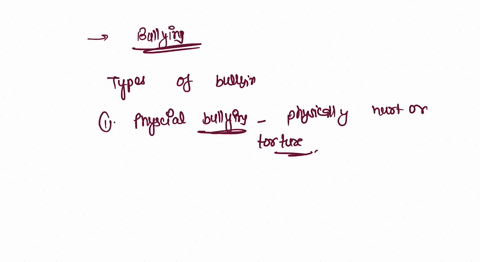 → Bullying
Types of bullyin
①. Physcial bullying - physically hurt or
torture.